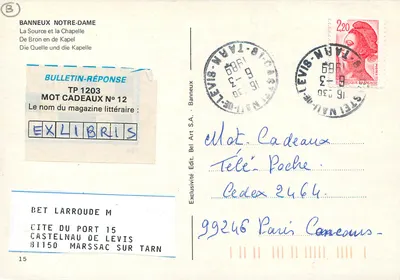 B
BANNEUX NOTRE-DAME
La Source et la Chapelle
De Bron en de Kapel
Die Quelle und die Kapelle
BULLETIN-RÉPONSE
TP 1203
MOT CADEAUX N° 12
Le nom du magazine littéraire :
EXLIBRIS
BET LARROUDE M
CITE DU PORT 15
CASTELNAU DE LEVIS
81150 MARSSAC SUR TARN
15
Exclusivité Edit. Bel Art S.A. - Banneux
2,20
81 CASTELNAU-DE-LEVIS
TARN
16 H30
6-3
1989
81 CASTELNAU-DE-LEVIS
TARN
16 H30
6-3
1989
Mot. Cadeaux
Télé. Poche.
Cedex 2464.
99246 Paris Concours.